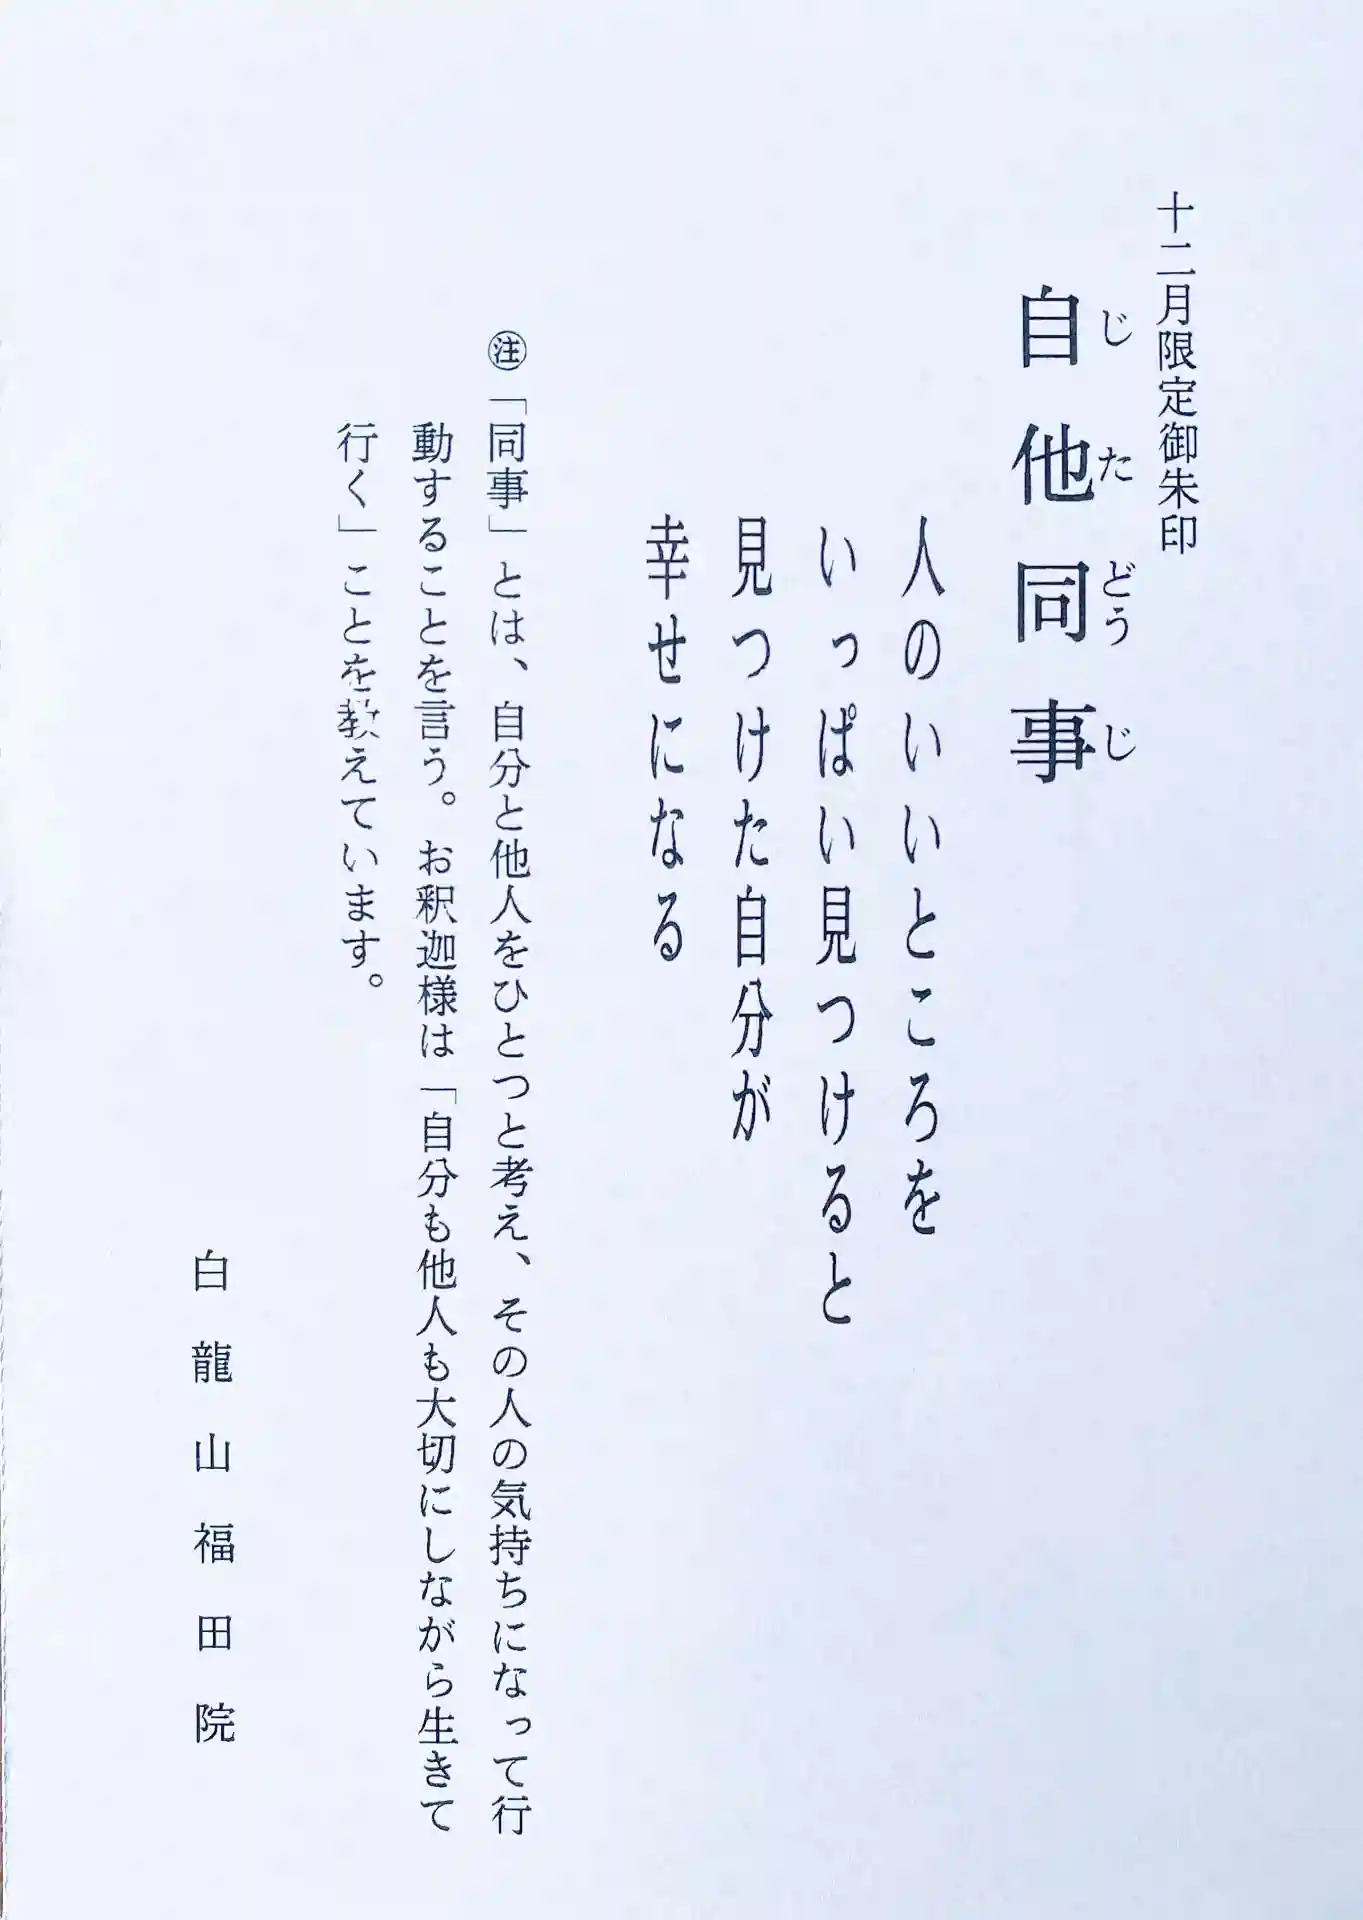 十二月限定御朱印
自他同事
じたどうじ
人のいいところを
いっぱい見つけると
見つけた自分が
幸せになる
㊟「同事」とは、自分と他人をひとつと考え、その人の気持ちになって行
動することを言う。お釈迦様は「自分も他人も大切にしながら生きて
行く」ことを教えています。
白龍山福田院